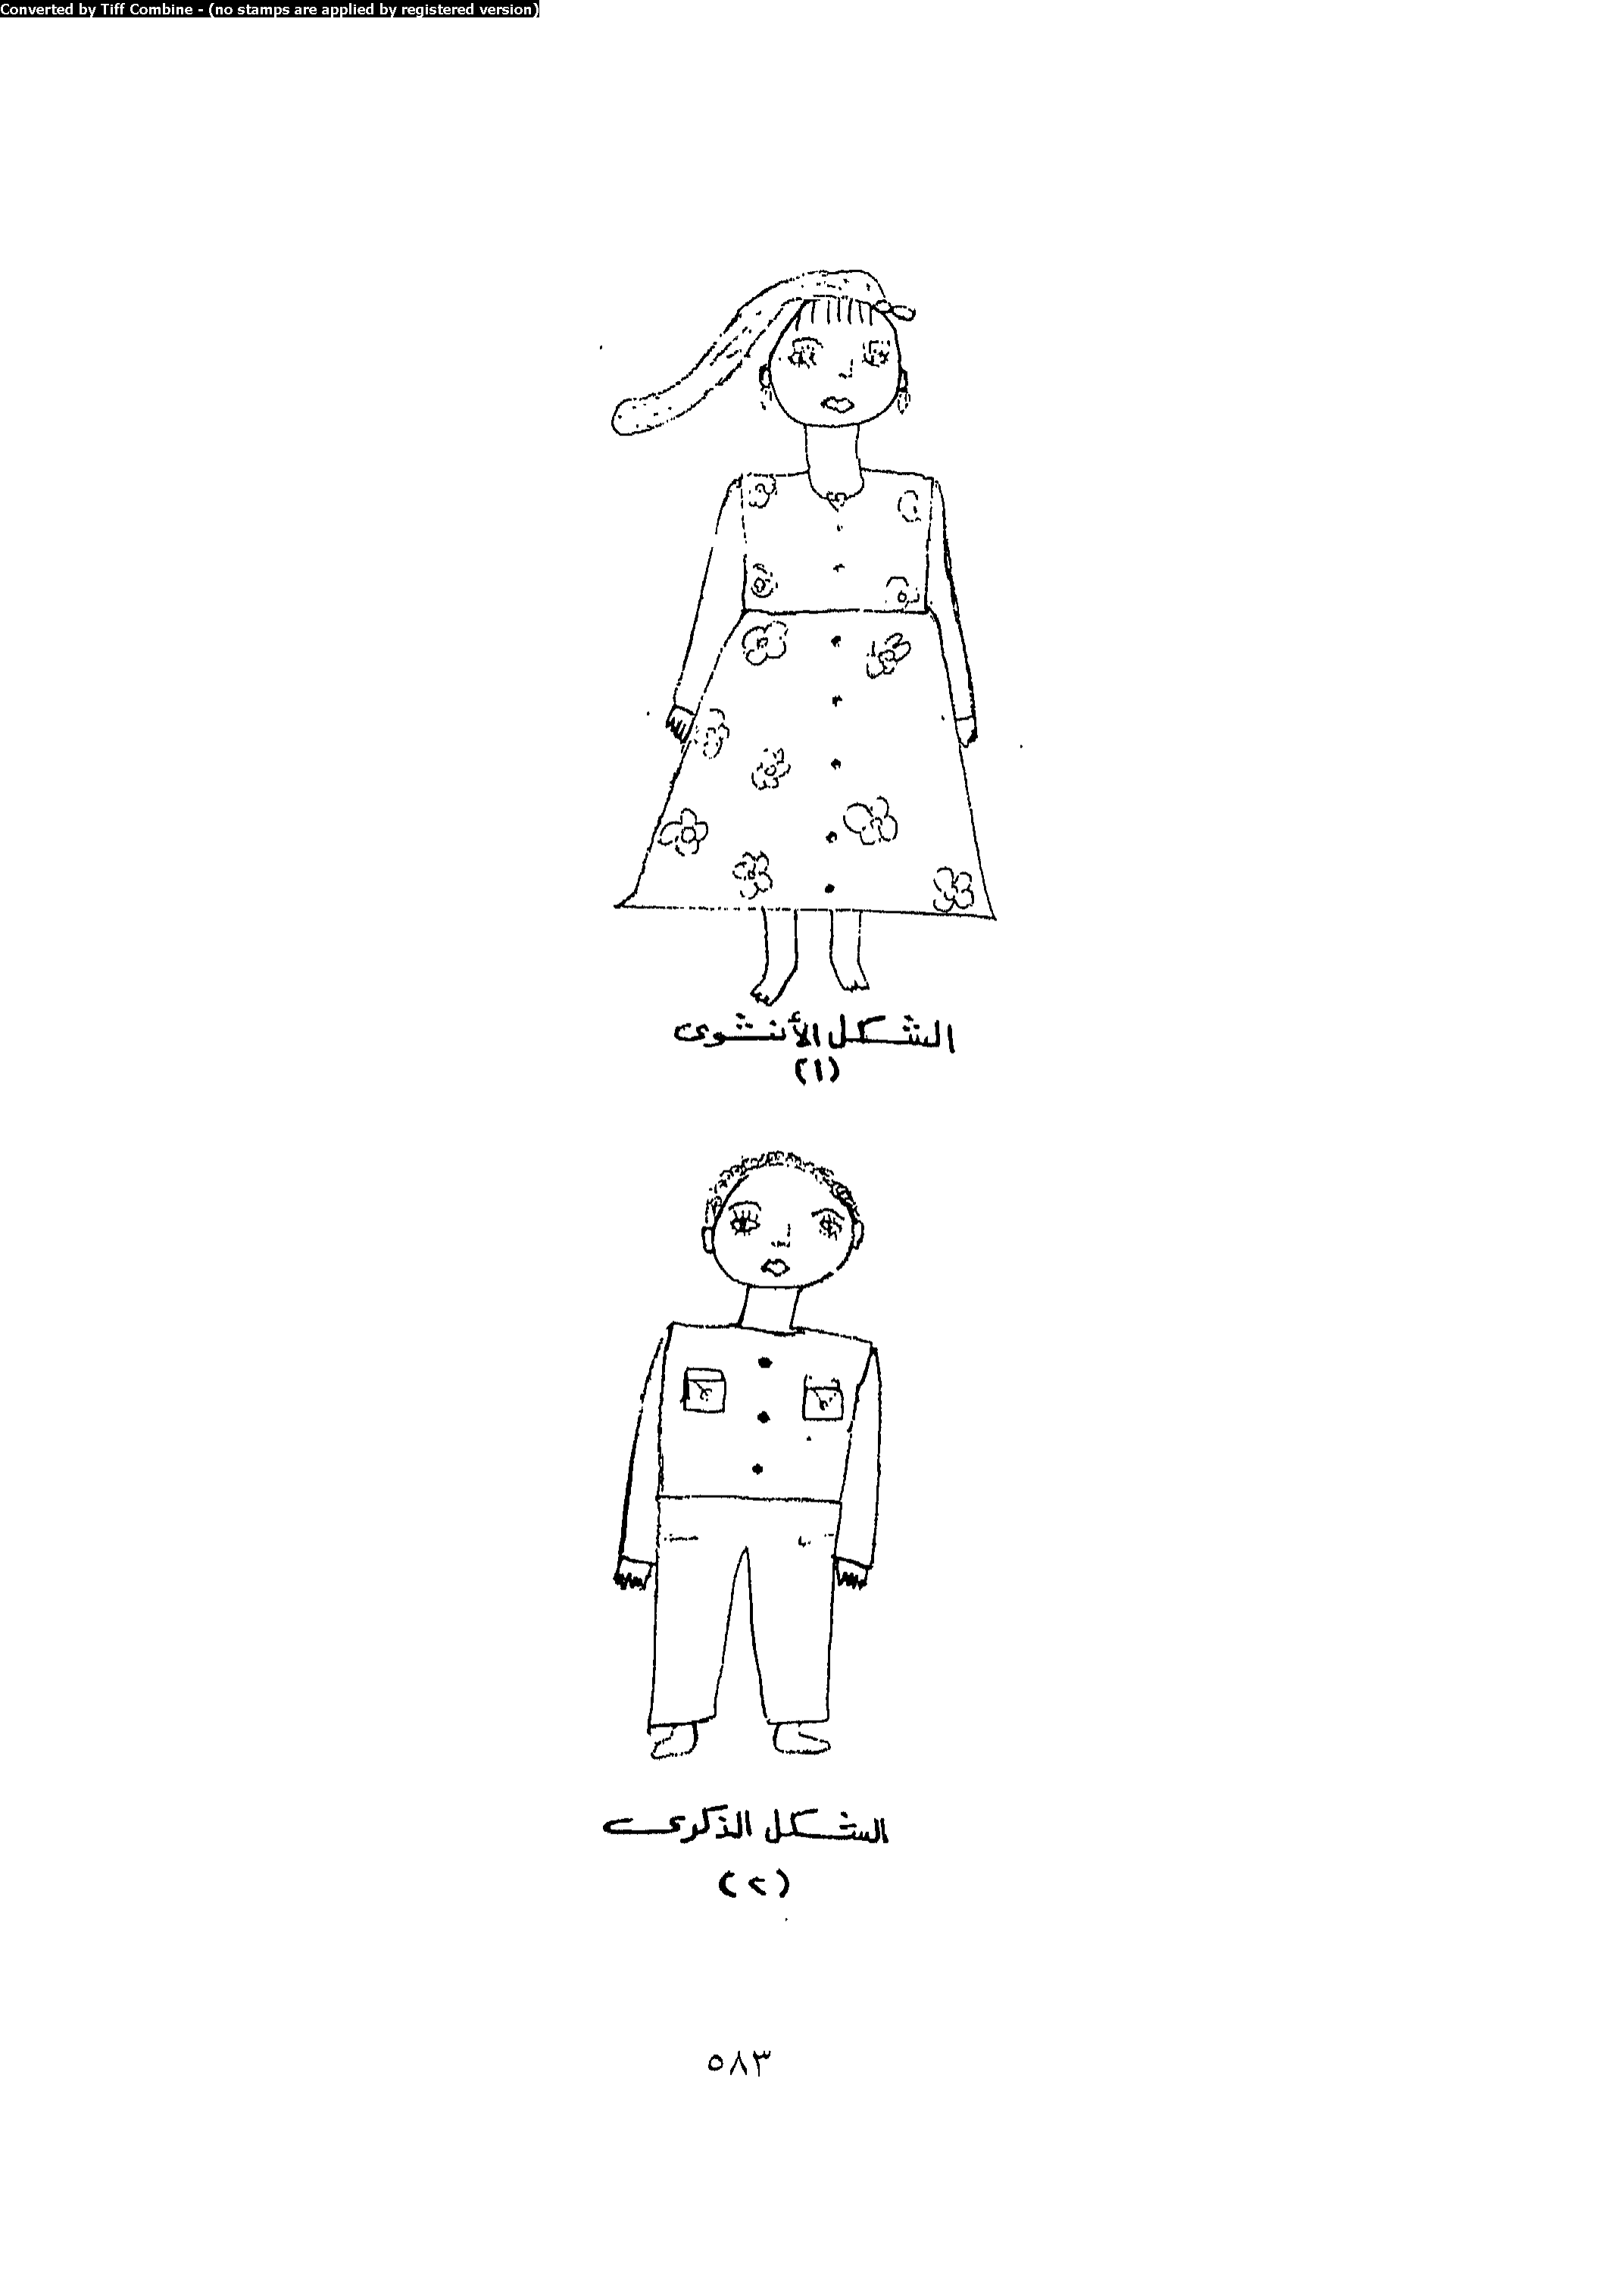 Converted by Tiff Combine - (no stamps are applied by registered version)
الشكل الأنثوى
(١)
الشكل الذكرى
(٢)
٥٨٣